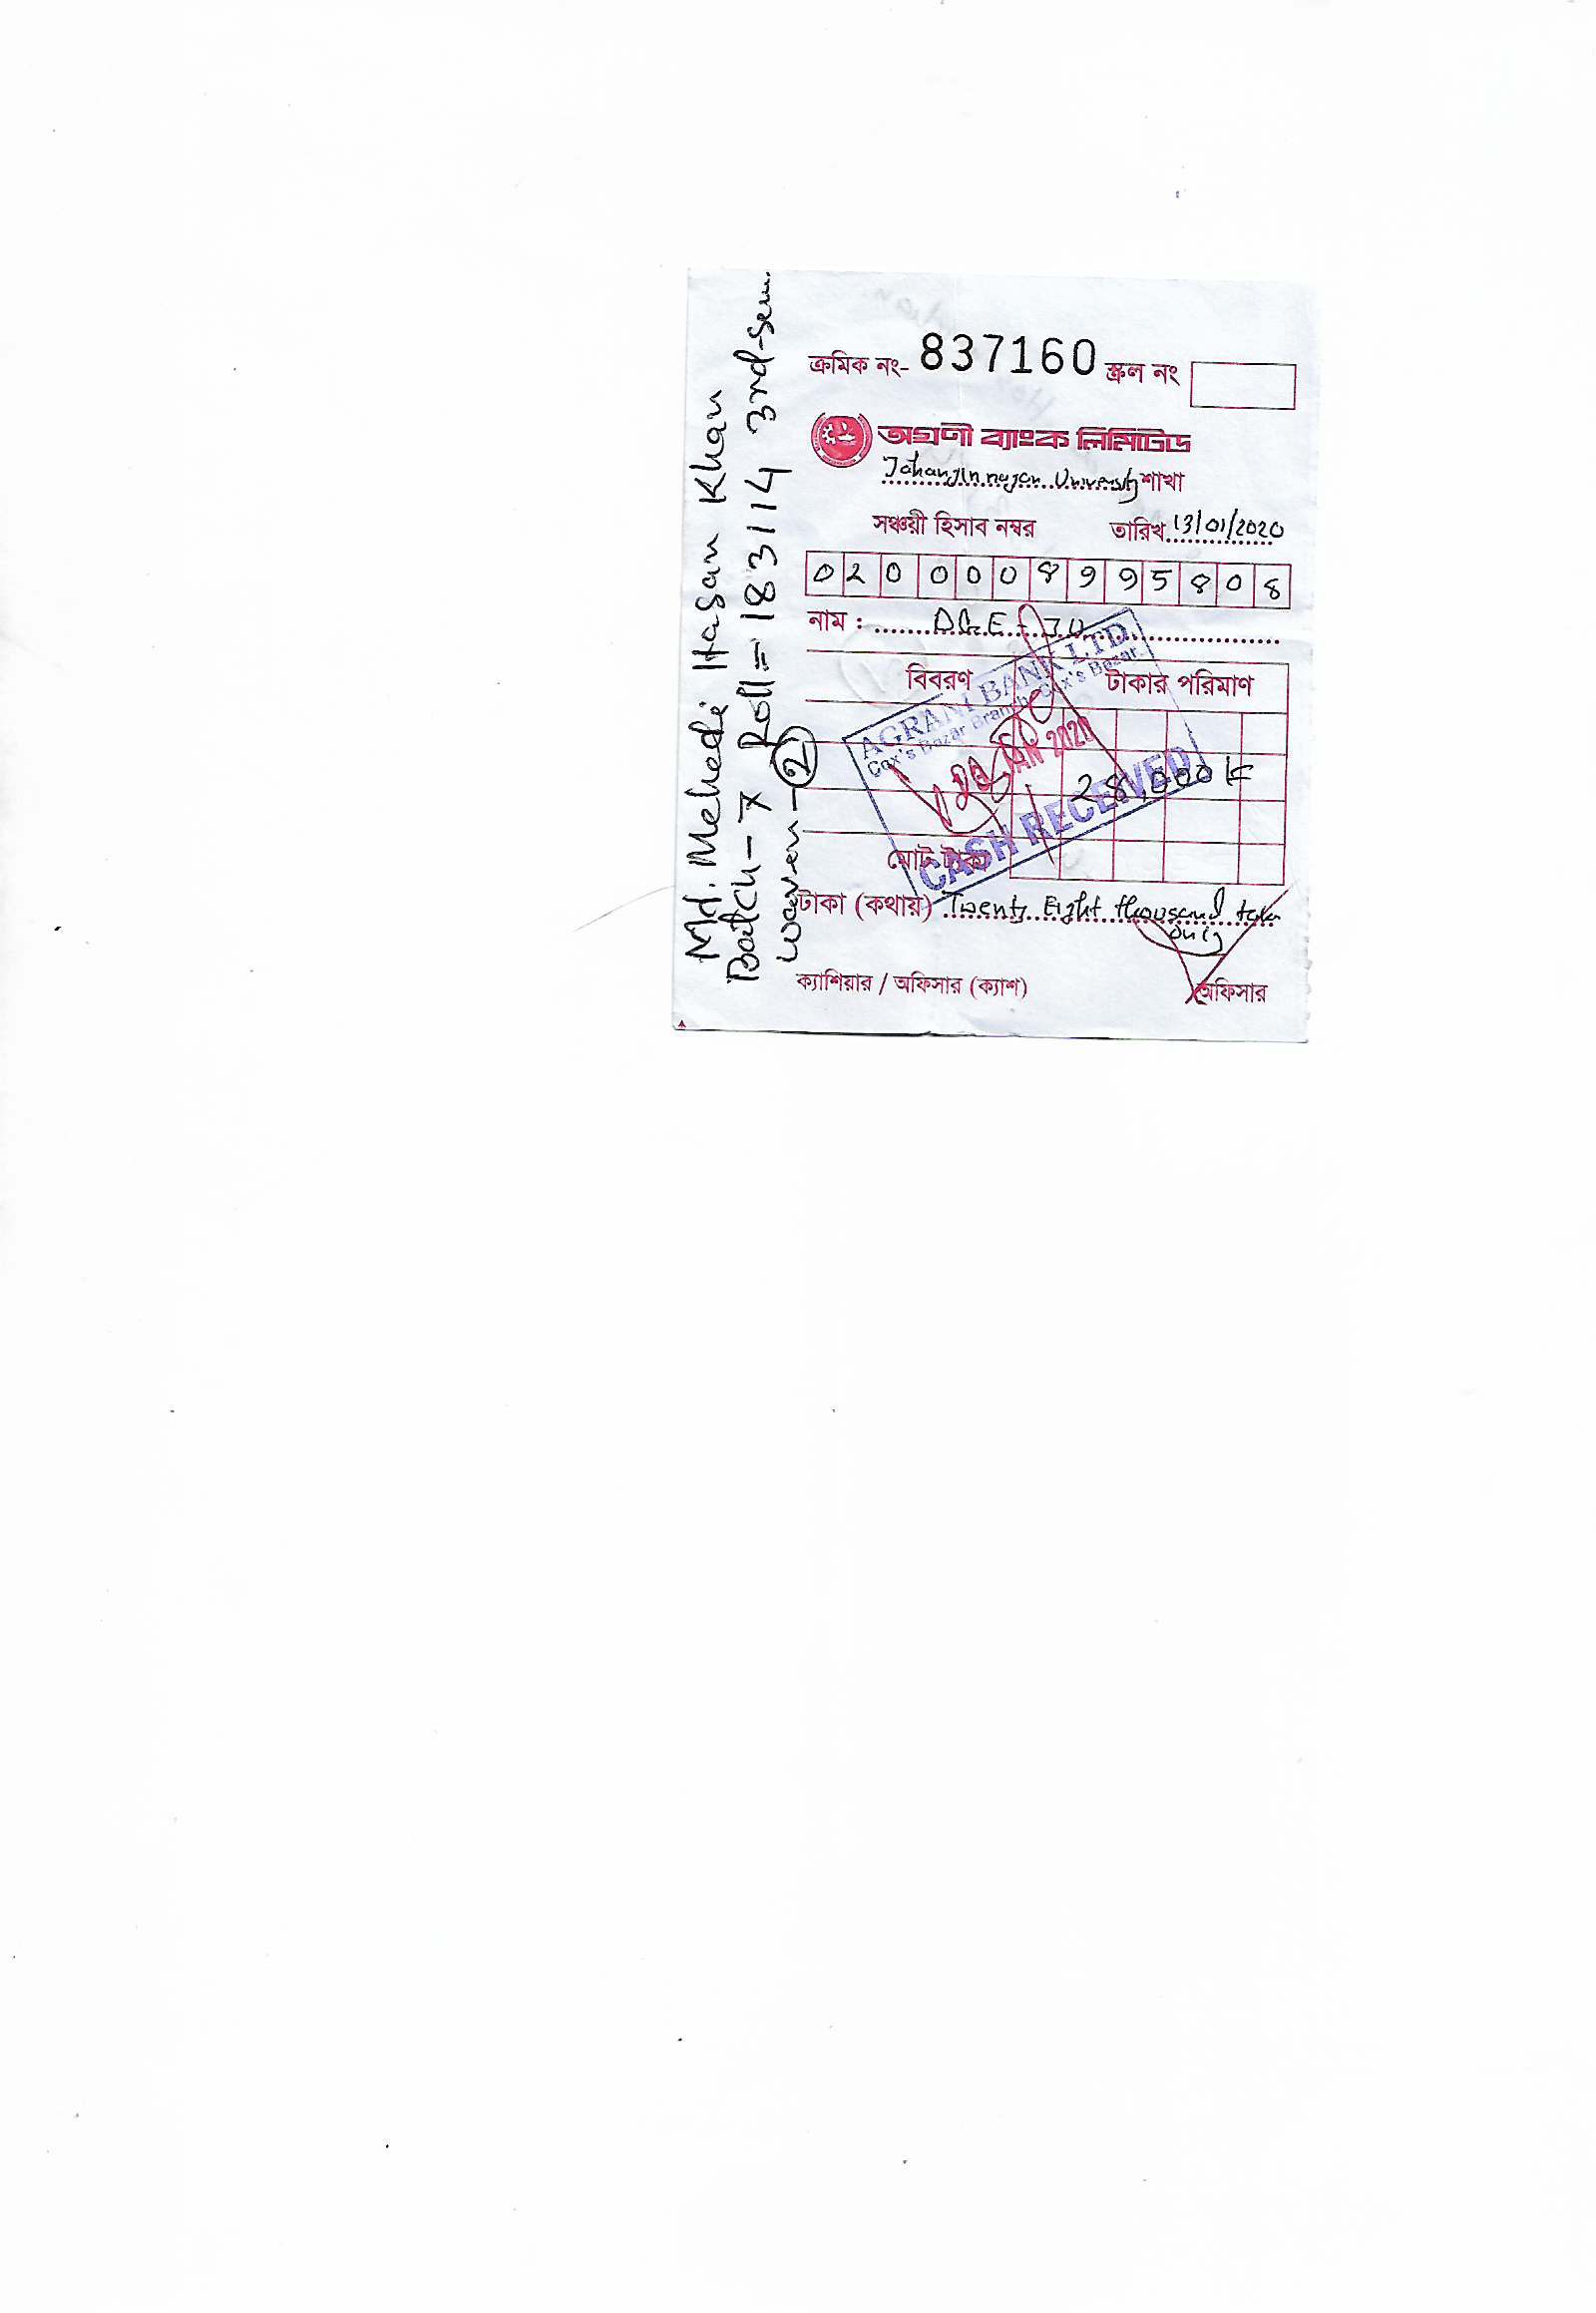 Md. Mehedi Hasan Khan
Batch-7 Roll=183114 3rd-sem.
waver-2
ক্রমিক নং- 837160 স্ক্রল নং
অগ্রণী ব্যাংক লিমিটেড
Jahangirnagar University শাখা
সঞ্চয়ী হিসাব নম্বর তারিখ 13/01/2020
0200008995808
নাম : DGE-JU
বিবরণ টাকার পরিমাণ
AGRANI BANK LTD.
Cox's Bazar Branch, Cox's Bazar.
JAN 2020
28,000
CASH RECEIVED
মোট টাকা
টাকা (কথায়) Twenty Eight thousand taka
only
ক্যাশিয়ার / অফিসার (ক্যাশ) অফিসার